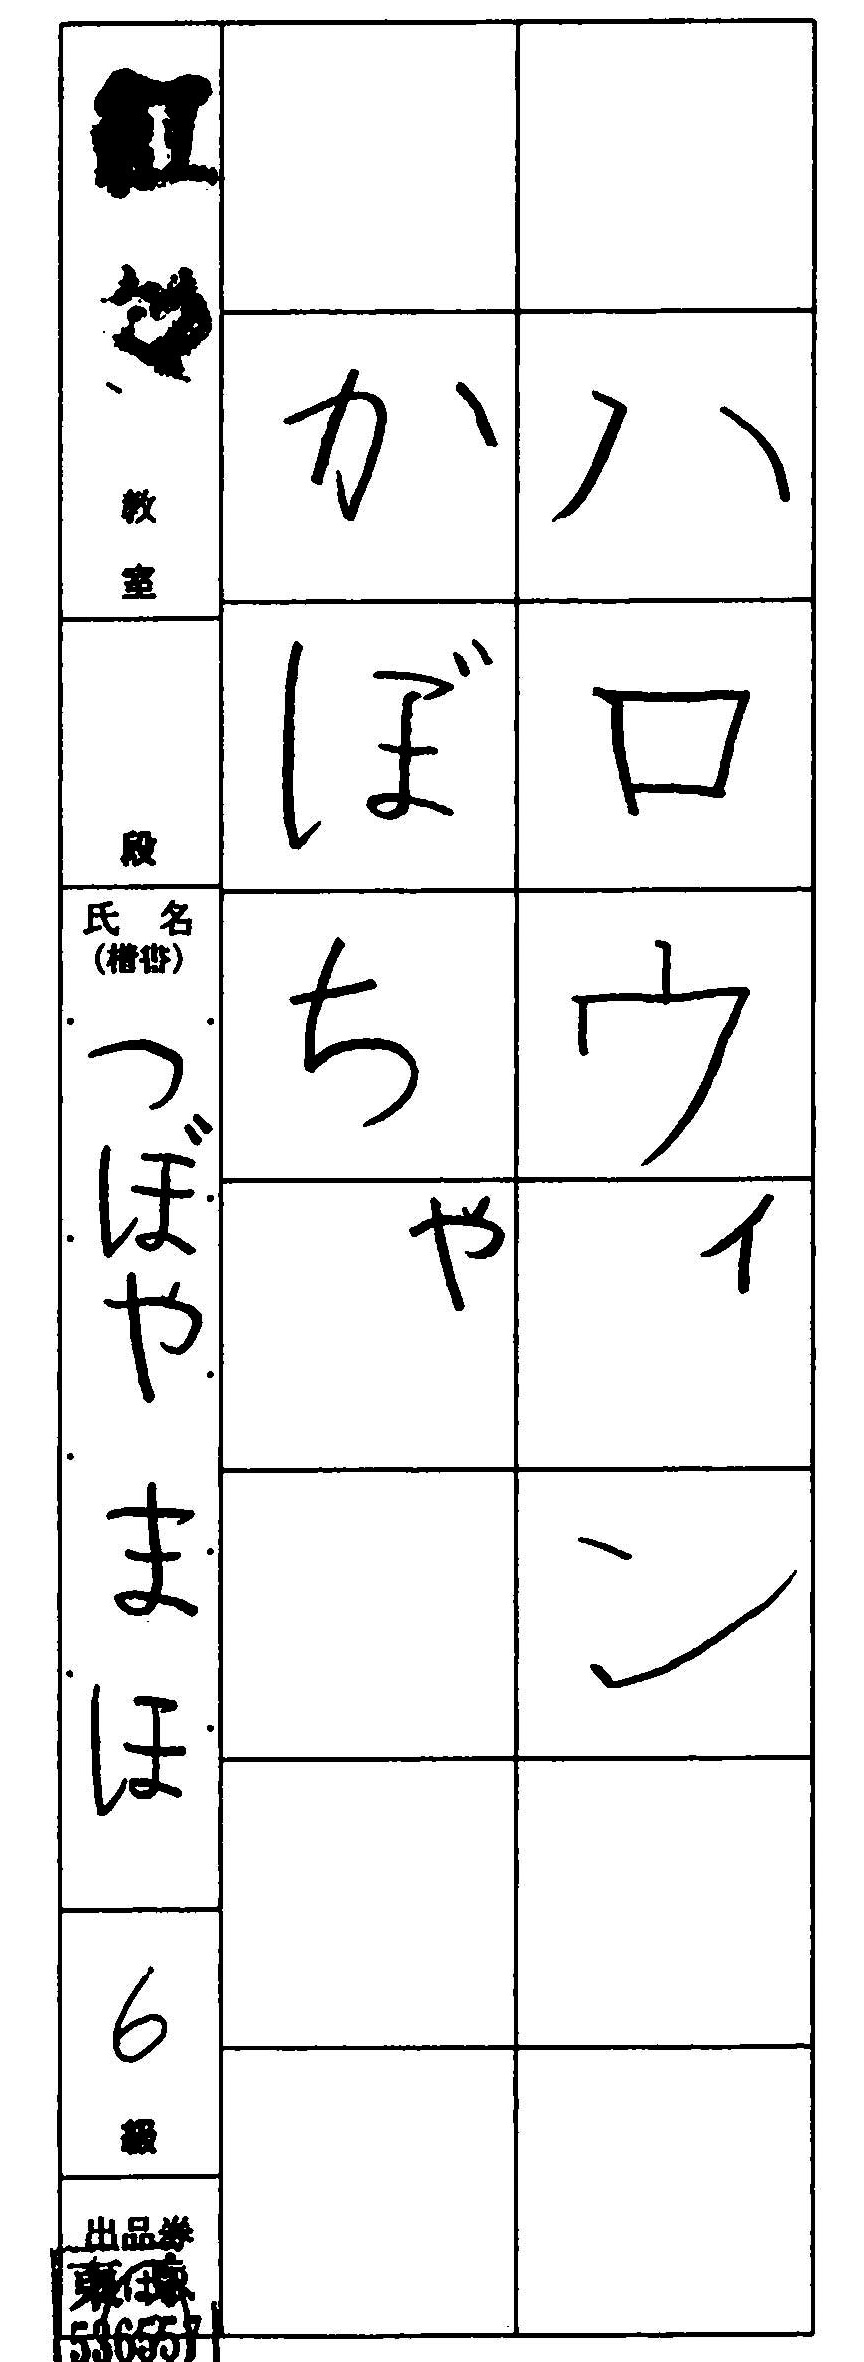 ハロウィン
かぼちゃ
教室
段
氏名
(楷書)
つぼや まほ
6級
出品券
536557